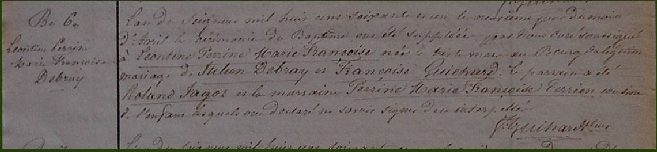 Be 6e
Léontine Perrine
Marie Françoise
Debray
L'an du Seigneur mil huit cent soixante et un le troisième jour du mois
d'Avril les cérémonies de Baptême ont été suppléées par Nous Curé soussigné
à Léontine Perrine Marie Françoise née le sept mars au Bourg du légitime
mariage de Debray et Françoise Guichard le parrain a été
Roland et la marraine Perrine Marie Françoise Terrien cousine
de l'enfant lesquels ont déclaré ne savoir signer de ce interpellés
Guihard